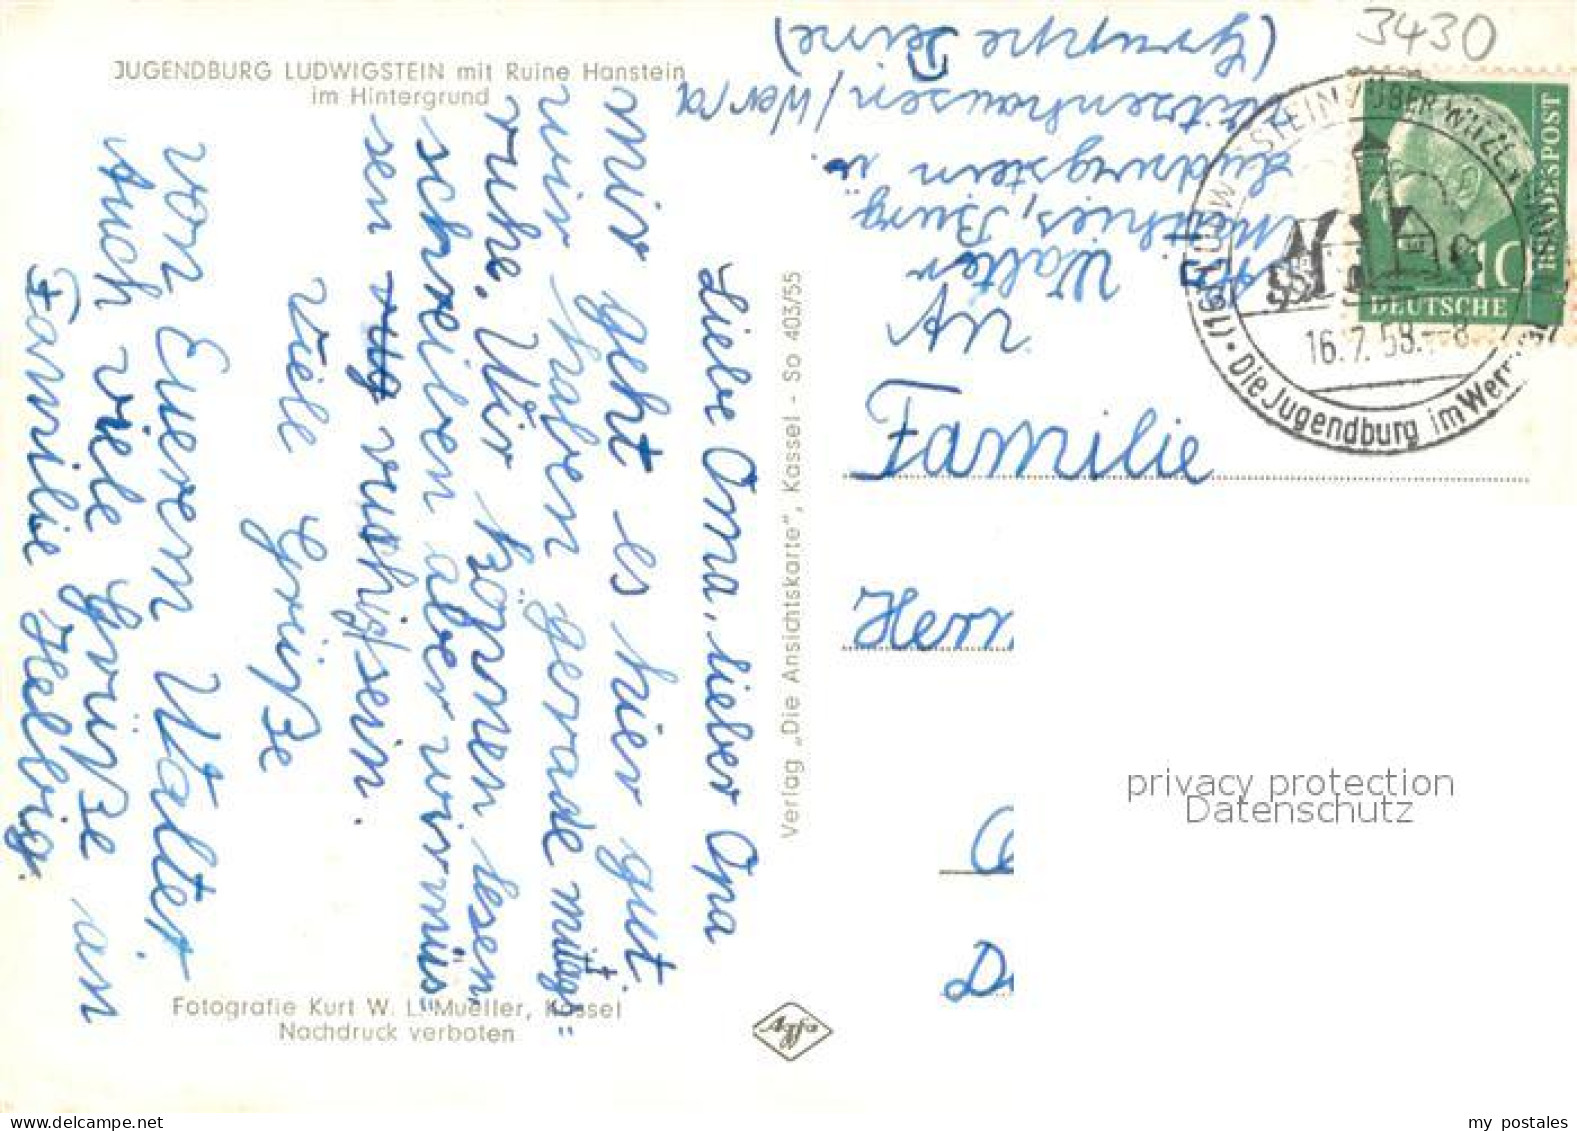 JUGENDBURG LUDWIGSTEIN mit Ruine Hanstein
im Hintergrund
Liebe Oma, lieber Opa
mir geht es hier gut.
wir haben gerade mittags=
ruhe. Wir können lesen,
schreiben aber wir müs=
sen ruhig sein.
Viele Grüße
von Euerem Walter
Auch viele Grüße an
Familie Helbig.
Fotografie Kurt W. L. Mueller, Kassel
Nachdruck verboten
Verlag „Die Ansichtskarte", Kassel - So 403/55
Agfa
Walter
Matthies, Burg
Ludwigstein ü.
Witzenhausen/Werra
(Gruppe Leine)
3430
ÜBER WITZ
Die Jugendburg im Werr
16.7.58.-8
BUNDESPOST
10
DEUTSCHE
Familie
Herr
privacy protection
Datenschutz
my postales